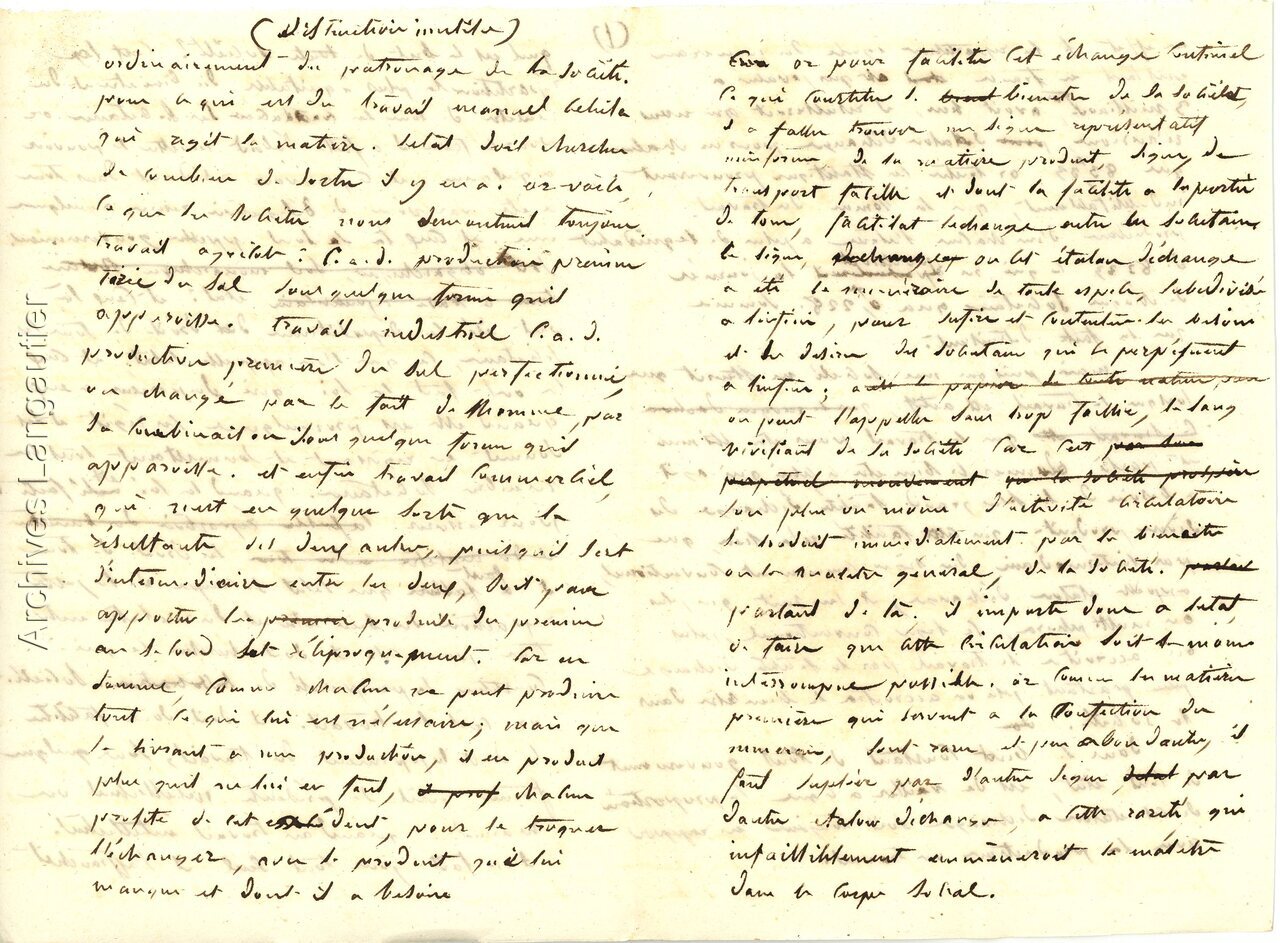 (distinction inutile)
ordinairement du patronage de la société.
pour ce qui est du travail manuel celui la
qui régit la matiere. letat doit chercher
de combien de sortes il y en a. or voila,
ce que les societés nous demontrent toujours
travail agricole : C.a.d. production premiere
tirée du sol sous quelque forme quil
apparoisse. travail industriel C.a.d.
production première du sol perfectionné,
ou changé, par le fait de lhomme, par
la Combinaison sous quelque forme quil
apparoisse. et enfin travail Commercial,
qui nest en quelque sorte que la
résultante des deux autres, puis quil sert
d'intermédiaire entre les deux, soit pour
apporter les premier produits du premier
au second et réciproquement. Car en
somme, comme chacun ne peut produire
tout ce qui lui est nécessaire; mais que
se livrant a une production, il en produit
plus quil ne lui en faut, il prof chacun
profite de cet excédent, pour le troquer
l'échanger, avec le produit qui lui
manque et dont il a besoin
(1)
or pour faciliter cet échange continuel
ce qui constitue le bienetre de la société,
il a fallu trouver un signe représentatif
uniforme, de la matière produit, signe, de
transport facille et dont la facilité a la porté
de tous, facilitat lechange entre les sociétaires
le signe, dechanger ou cet étalon d'échange
a été le numéraire de toute espece, subdivisé
a linfini, pour sufire et contenter les besoins
et les desirs des sociétaires qui se perpétuent
a linfini; a été le papier de toute nature,
on peut l'appeller sans trop faillir, le sang
vivifiant de la société Car cest par son
perpetuel mouvement que la société prospère
son plus ou moins d'activité circulatoire
se traduit immediatement par le bienetre
ou le malaitre général, de la société. partant
partant de là. il importe donc a letat,
de faire que cette circulation soit le moins
interrompue possible. or comme les matières
première qui servent a la confection du
numeraire, sont rares et peu abondantes, il
faut supléer par d'autre signe, par
dautre étalon déchange, a cette rareté qui
infailliblement emmèneroit le malaitre
dans le corps social.
Archives Langautier